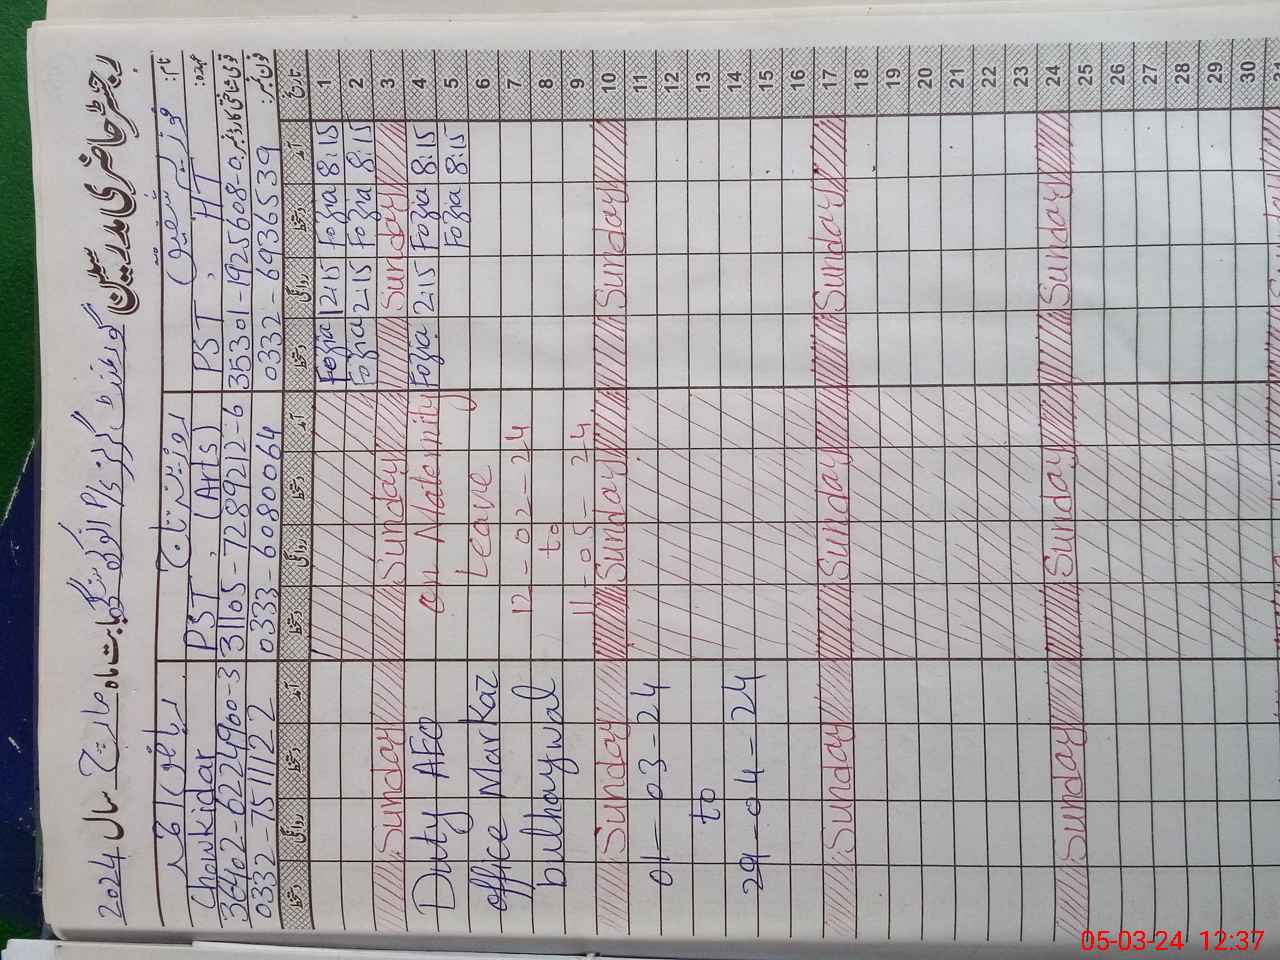 رجسٹر حاضری مدرسین گورنمنٹ گرلز P/S
بابت ماہ مارچ سال 2024
نام:
فوزیہ شفیق
روزینہ تاج
ریاض احمد
عہدہ:
PST, HT
PST, (Arts)
Chowkidar
قومی شناختی کارڈ نمبر
35301-1925608-0
31105-7289212-6
36402-6224900-3
فون نمبر:
0332-6936539
0333-6080064
0332-7511122
تاریخ آمد دستخط روانگی دستخط آمد دستخط روانگی دستخط آمد دستخط روانگی دستخط
1 8:15 Fozia 12:15 Fozia
2 8:15 Fozia 12:15 Fozia
3 Sunday Sunday Sunday
4 8:15 Fozia 2:15 Fozia on Maternity Duty AEO
5 8:15 Fozia
6 Leave office Markaz
7 12-02-24
8 to bulhaywal
9 11-05-24
10 Sunday Sunday Sunday
11
12 01-03-24
13 to
14
15 29-04-24
16
17 Sunday Sunday Sunday
18
19
20
21
22
23
24 Sunday Sunday Sunday
25
26
27
28
29
30
31 Sunday
05-03-24 12:37